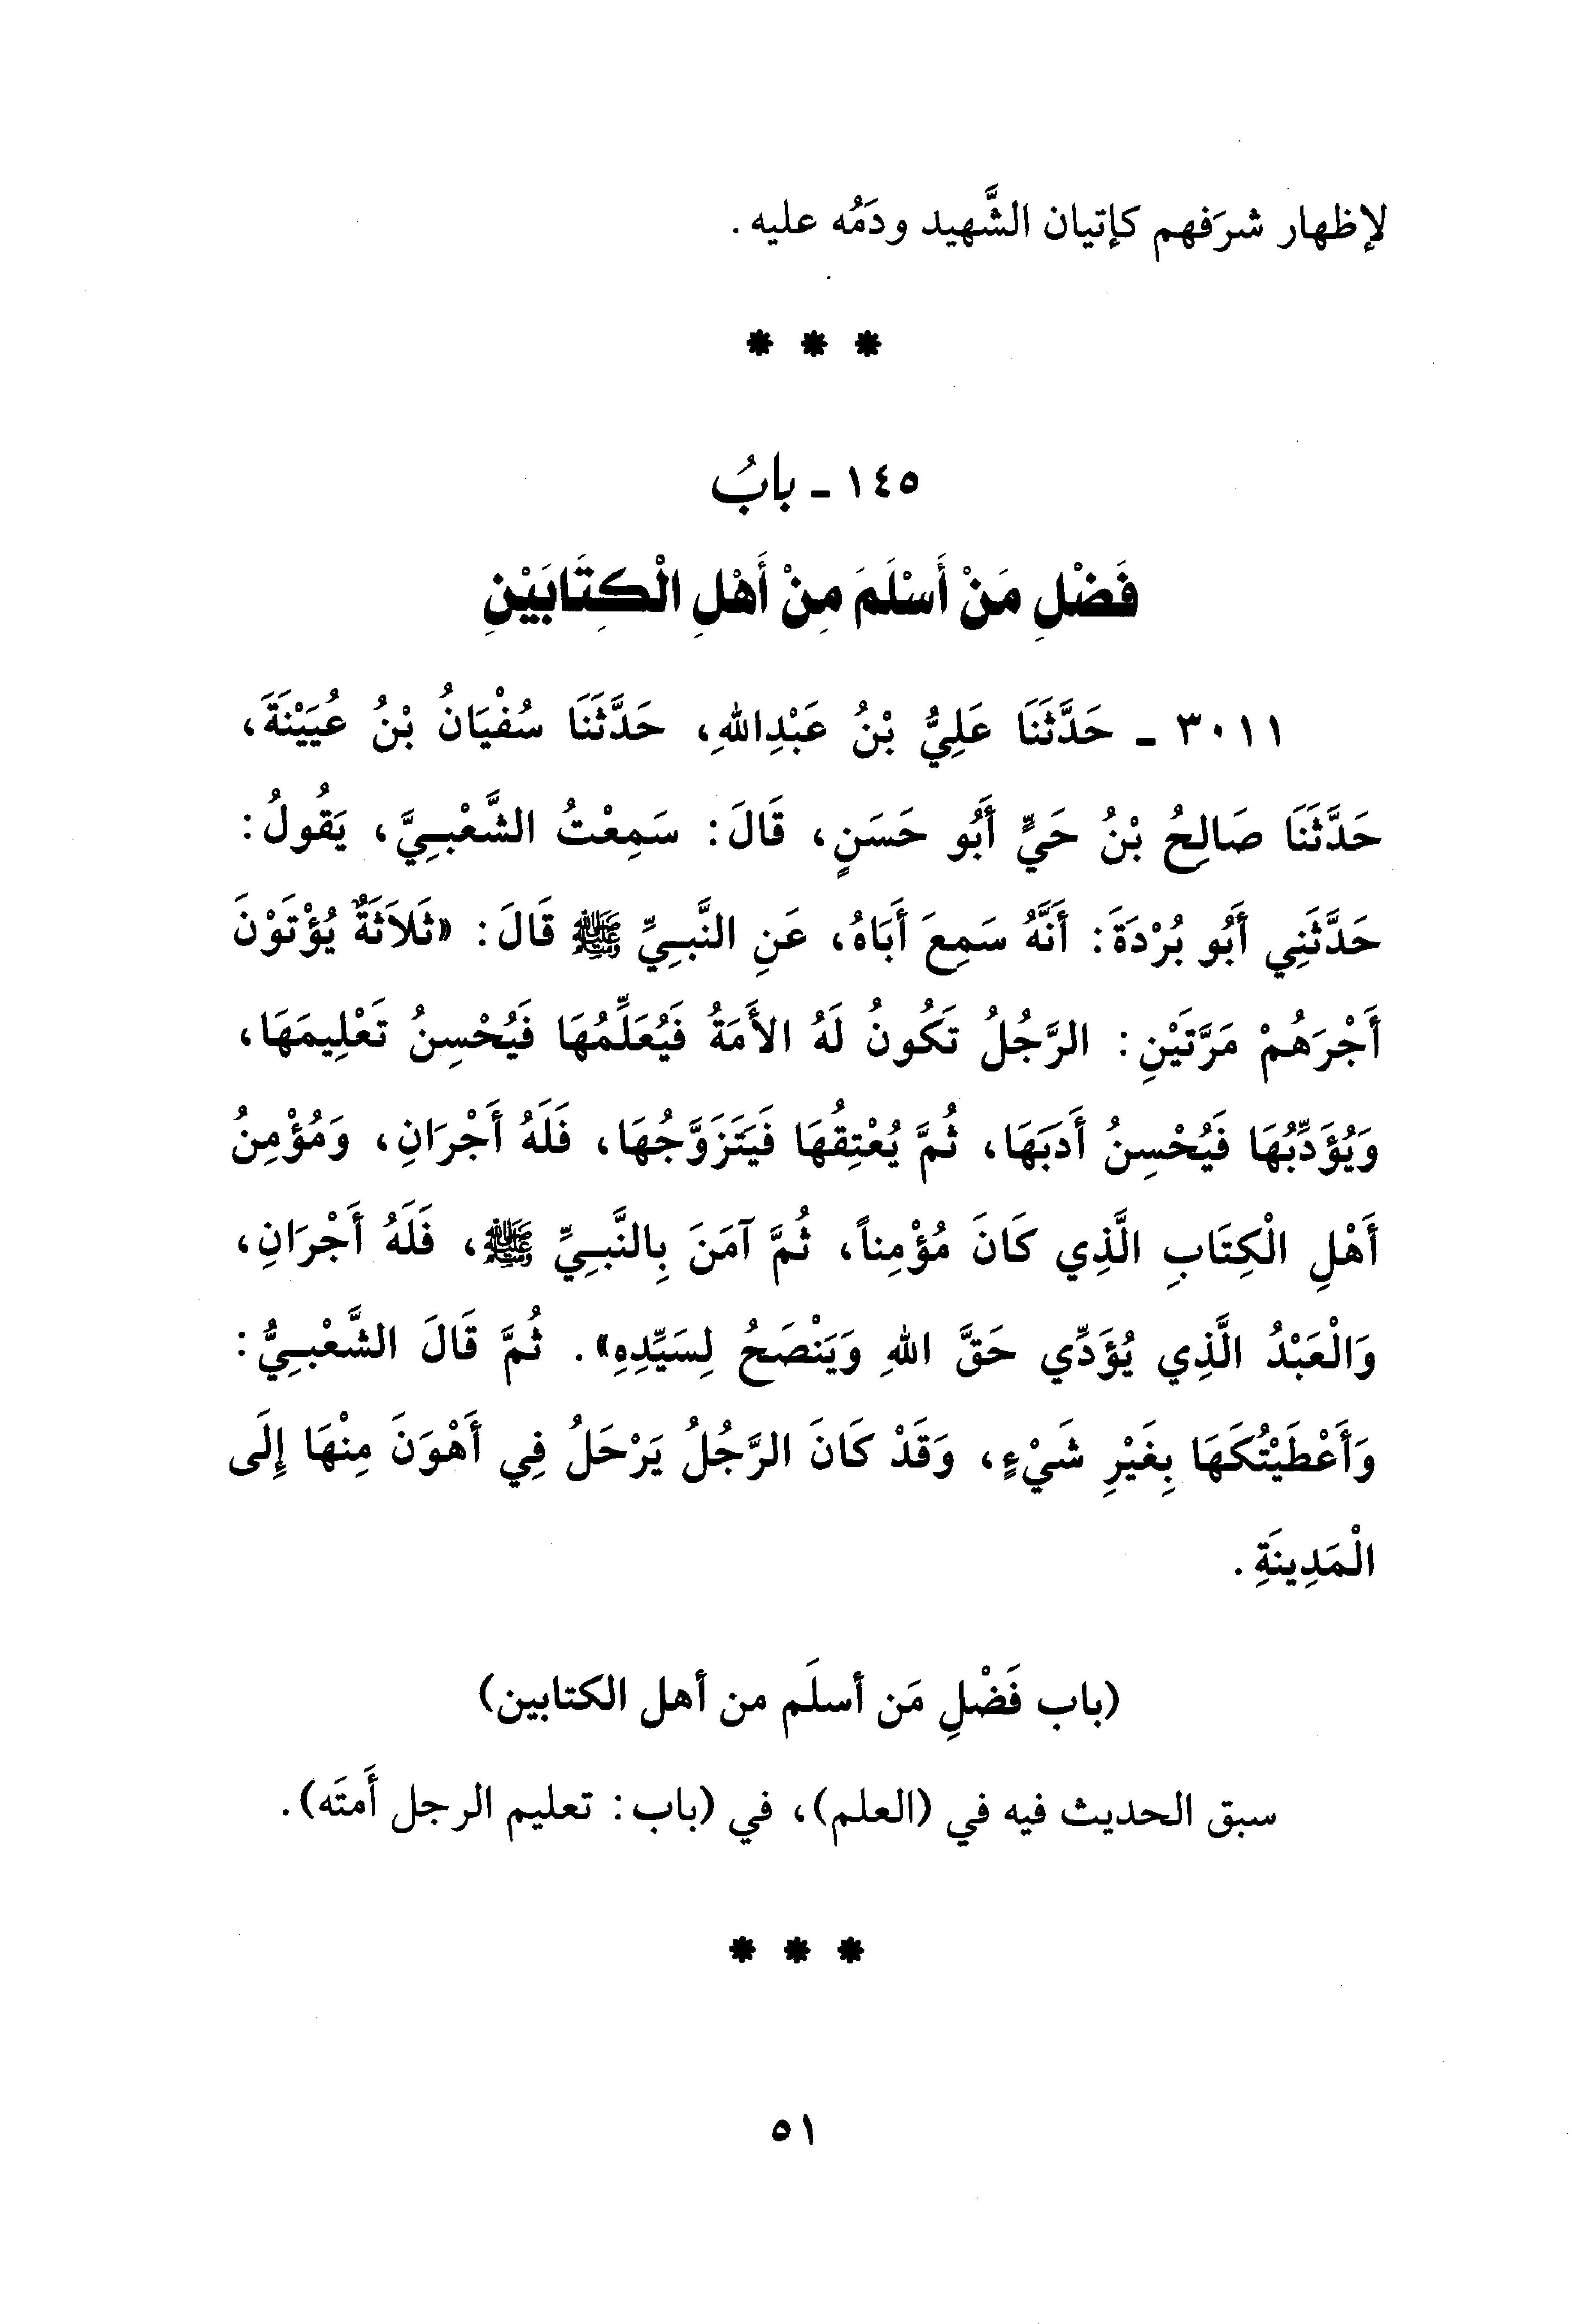 لإظهار شرَفهم كإتيان الشَّهيد ودَمُه عليه.
* * *
١٤٥ ـ بابُ
فَضْلِ مَنْ أَسْلَمَ مِنْ أَهْلِ الْكِتَابَيْنِ
٣٠١١ ـ حَدَّثَنَا عَلِيُّ بْنُ عَبْدِاللهِ، حَدَّثَنَا سُفْيَانُ بْنُ عُيَيْنَةَ،
حَدَّثَنَا صَالِحُ بْنُ حَيٍّ أَبُو حَسَنٍ، قَالَ: سَمِعْتُ الشَّعْبِيَّ، يَقُولُ:
حَدَّثَنِي أَبُو بُرْدَةَ: أَنَّهُ سَمِعَ أَبَاهُ، عَنِ النَّبِيِّ ﷺ قَالَ: «ثَلاَثَةٌ يُؤْتَوْنَ
أَجْرَهُمْ مَرَّتَيْنِ: الرَّجُلُ تَكُونُ لَهُ الأَمَةُ فَيُعَلِّمُهَا فَيُحْسِنُ تَعْلِيمَهَا،
وَيُؤَدِّبُهَا فَيُحْسِنُ أَدَبَهَا، ثُمَّ يُعْتِقُهَا فَيَتَزَوَّجُهَا، فَلَهُ أَجْرَانِ، وَمُؤْمِنُ
أَهْلِ الْكِتَابِ الَّذِي كَانَ مُؤْمِناً، ثُمَّ آمَنَ بِالنَّبِيِّ ﷺ، فَلَهُ أَجْرَانِ،
وَالْعَبْدُ الَّذِي يُؤَدِّي حَقَّ اللهِ وَيَنْصَحُ لِسَيِّدِهِ». ثُمَّ قَالَ الشَّعْبِيُّ:
وَأَعْطَيْتُكَهَا بِغَيْرِ شَيْءٍ، وَقَدْ كَانَ الرَّجُلُ يَرْحَلُ فِي أَهْوَنَ مِنْهَا إِلَى
الْمَدِينَةِ.
(باب فَضْلِ مَن أسلَم من أهل الكتابين)
سبق الحديث فيه في (العلم)، في (باب: تعليم الرجل أَمتَه).
* * *
٥١